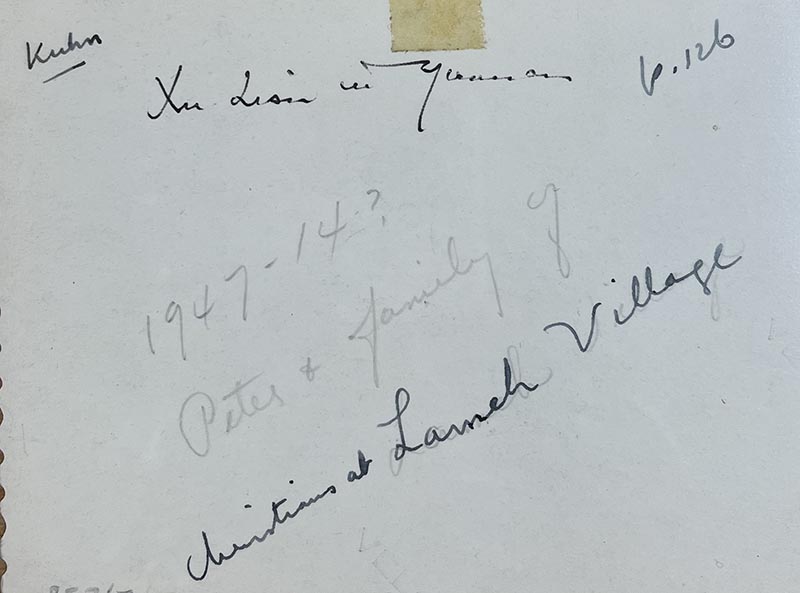 Kuhn
Xu Lisu in Yunnan p. 126
1947-14?
Peter & family of
Christians at Lameh Village